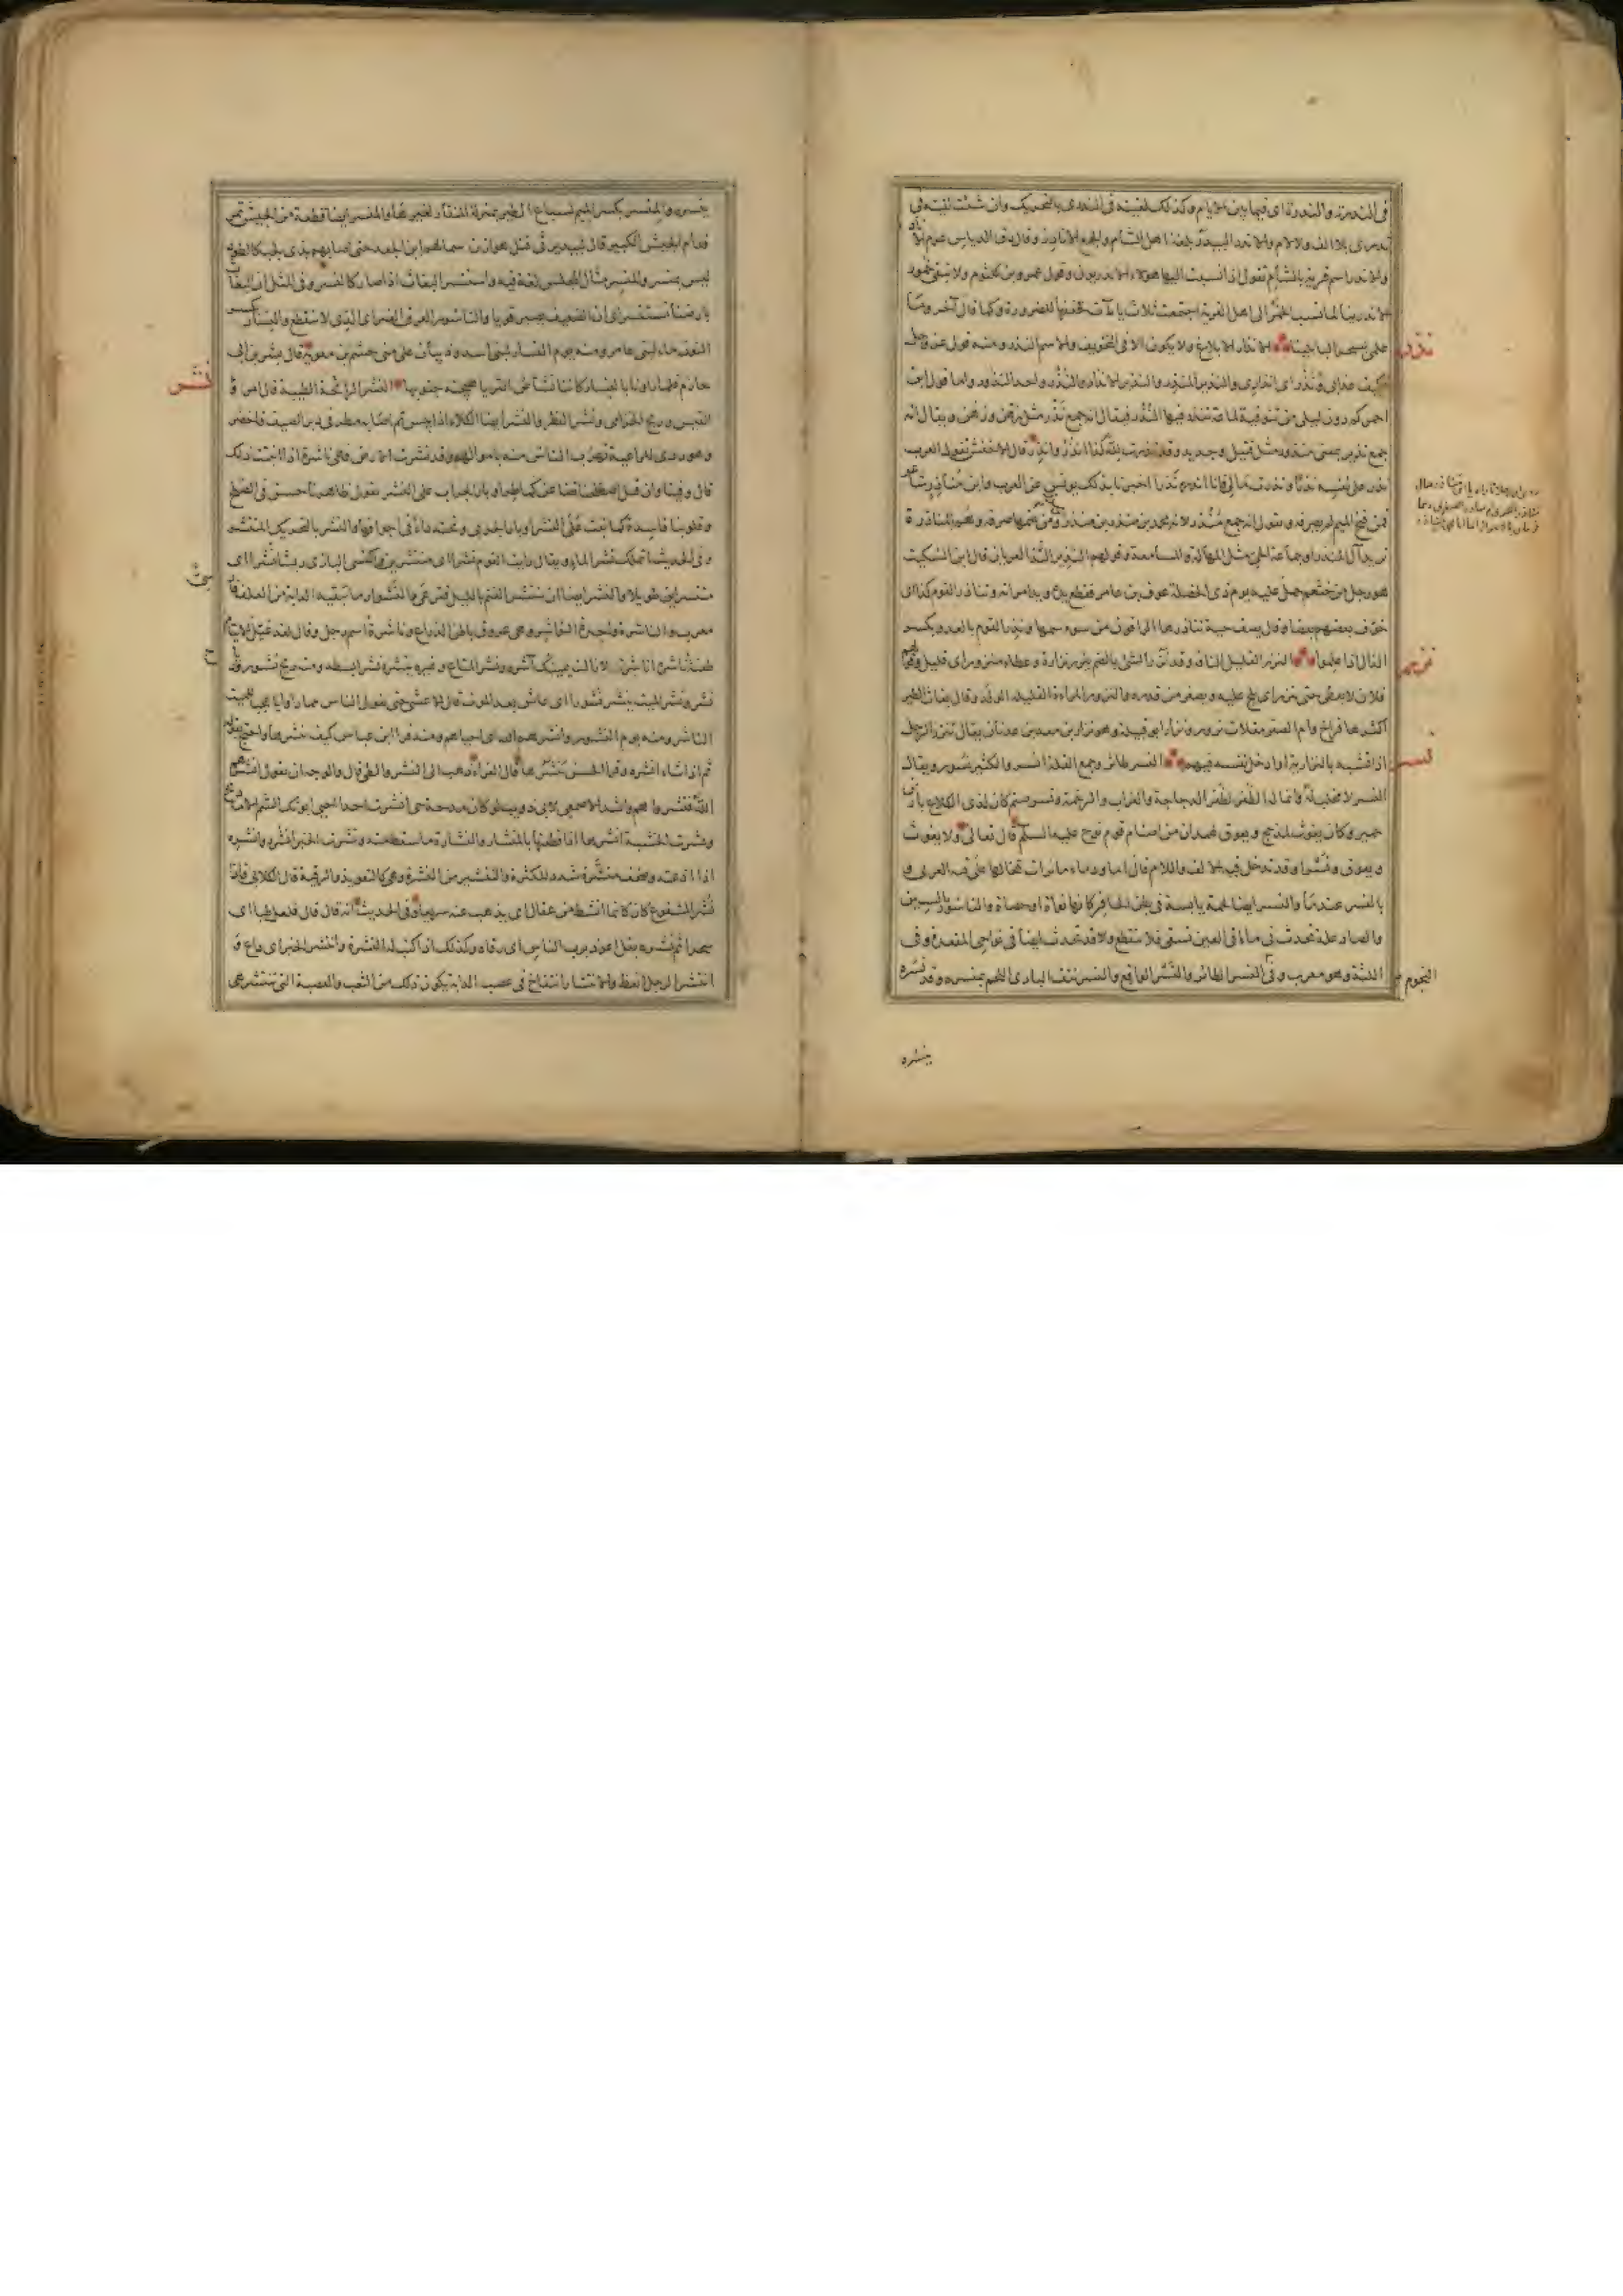 في الندرة والندرة اى فيما بين الايام وكذلك لقيته في الندرى بالتحريك وان شئت لقيته في
ندرى بلا الف ولام والاندر البيدر بلغة اهل الشأم والجمع الانادر وقال دق الدياس عرم الانادر
والاندر اسم قرية بالشأم تقول اذا نسبت اليها هولاء الاندريون وقول عمرو بن كلثوم ولا تبقى خمور
الاندرينا لما نسب الخمر الى اهل القرية اجتمعت ثلاث ياآت فخففها للضرورة وكما قال آخر وما
علمى بسحر البابلينا الانذار الابلاغ ولا يكون الا في التخويف والاسم النذر ومنه قوله عز وجل
نذر
فكيف كان عذابى ونذر اى انذارى والنذير المنذر والنذير الانذار والنذر واحد النذور واما قول ابن
احمر كم دون ليلى من تنوفية لماعة تنذر فيها النذر فيقال انه جمع نذر مثل رهن ورهن ويقال انه
جمع نذير بمعنى منذور مثل قتيل وجديد وقد نذرت لله كذا انذر وانذر قال الاخفش تقول العرب
نذر على نفسه نذرا ونذرت مالى فانا انذره نذرا اخبرنا بذلك يونس عن العرب وابن مناذر شاعر
فمن فتح الميم لم يصرفه ويقول انه جمع منذر لانه محمد بن منذر بن منذر بن منذر ومن ضمها صرفه وهم المناذرة
تريد آل المنذر او جماعة الحى مثل المهالبة والمسامعة وقولهم النذير العريان قال ابن السكيت
هو رجل من خثعم حمل عليه يوم ذى الخلصة عوف بن عامر فقطع يده ويد امرأته وتناذر القوم كذا اى
خوف بعضهم بعضا وقال يصف حية تناذرها الراقون من سوء سمها ونذر القوم بالعدو بكسر
الذال اذا علموا النزر القليل التافه وقد نزر الشئ بالضم ينزر نزارة وعطاء منزور اى قليل وقولهم
نزر
فلان لا يعطى حتى ينزر اى يلح عليه ويصغر من قدره والنزور المراة القليلة الولد وقال بغاث الطير
اكثرها فراخا وام الصقر مقلات نزور ونزار ابو قبيلة وهو نزار بن معد بن عدنان يقال تنزر الرجل
اذا تشبه بالنزارية او ادخل نفسه فيهم النسر طائر وجمع القلة انسر والكثير نسور ويقال
نسر
النسر لا مخلب له وانما له الظفر كظفر الدجاجة والغراب والرخمة ونسر صنم كان لذى الكلاع بارض
حمير وكان يغوث لمذحج ويعوق لهمدان من اصنام قوم نوح عليه السلم قال تعالى ولا يغوث
ويعوق ونسرا وقد تدخل فيه الالف واللام قال اما ودماء مائرات تخالها على قنة العزى و
بالنسر عندما والنسر ايضا لحمة يابسة في بطن الحافر كانها نواة او حصاة والناسور بالسين
والصاد علة تحدث في مآقى العين تسقى فلا تنقطع وقد تحدث ايضا في نواحى المقعدة وفى
اللثة وهو معرب وفى النجوم النسر الطائر والنسر الواقع والنسر نتف البازى اللحم بمنسره وقد نسره
النجوم
ينسره
ينسره والمنسر بكسر الميم لسباع الطير بمنزلة المنقار لغيرها والمنسر ايضا قطعة من الجيش تمر
قدام الجيش الكبير قال لبيد يرثى قتل هوازن سما لهم ابن الجعد حتى اصابهم بذى لجب كالطود
ليس بمنسر والمنسر مثال المجلس لغة فيه واستنسر البغاث اذا صار كالنسر وفى المثل ان البغاث
بارضنا يستنسر اى ان الضعيف يصير قويا والناسور العرق الغبر اى الذى لا ينقطع والنسار بكسر
النون ماء لبنى عامر ومنه يوم النسار لبنى اسد وذبيان على بنى جشم بن معوية قال بشر بن ابى
خازم فلما راونا بالنسار كاننا نشاص الثريا هيجته جنوبها النشر الرائحة الطيبة قال امرؤ
نشر
القيس وريح الخزامى ونشر القطر والنشر ايضا الكلاء اذا يبس ثم اصابه مطر في دبر الصيف فاخضر
وهو ردى للراعية تهرب الناس منه باموالهم وقد نشرت الارض فهى ناشرة اذا انبتت ذلك
قال وفينا وان قيل اصطلحنا تضاغن كما طر اوبار الجراب على النشر يقول ظاهرنا حسن في الصلح
وقلوبنا فاسدة كما نبت على النشر اوبار الجربى وتحته داء في اجوافها والنشر بالتحريك المنتشر
وفى الحديث اتملك نشر الماء ويقال رايت القوم نشرا اى منتشرين واكتسى البازى ريشا نشرا اى
منتشرا طويلا والنشر ايضا ان تنتشر الغنم بالليل فترعى والنشوار ما تبقيه الدابة من العلف فارسى
معرب والناشرة واحدة النواشر وهى عروق باطن الذراع وناشرة اسم رجل وقال لقد عيل الايتام
طعنة ناشره اناشر لا زالت يمينك آشره ونشر المتاع وغيره ينشره نشرا بسطه ومنه ريح نشور
نشر ونشر الميت ينشر نشورا اى عاش بعد الموت قال الاعشى حتى يقول الناس مما راوا يا عجبا للميت
الناشر ومنه يوم النشور وانشرهم الله اى احياهم ومنه قرأ ابن عباس كيف ننشرها واحتج بقوله
ثم اذا شاء انشره وقرأ الحسن ننشرها قال الفراء ذهب الى النشر والطى قال والوجه ان تقول انشرهم
الله فنشروا هم وانشد الاصمعى لابى ذويب لو كان مدحة حى انشرت احدا احيى ابوتك الشم الاماديح
ونشرت الخشبة انشرها اذا قطعتها بالمنشار والنشارة ما سقط منه ونشرت الخبر انشره وانشره
اذا اذعته وصحف منشرة شدد للكثرة والتنشير من النشرة وهى كالتعويذ والرقية قال الكلابى فاذا
نشر المسفوع كان كانما انشط من عقال اى يذهب عنه سريعا وفى الحديث انه قال فلعل طبا اى
سحرا ثم نشره بقل اعوذ برب الناس اى رقاه وكذلك اذا كتب له النشرة وانتشر الخبر اى ذاع و
انتشر الرجل انعظ والانتشار انتفاخ في عصب الدابة يكون ذلك من التعب والعصبة التى تنتشر هى